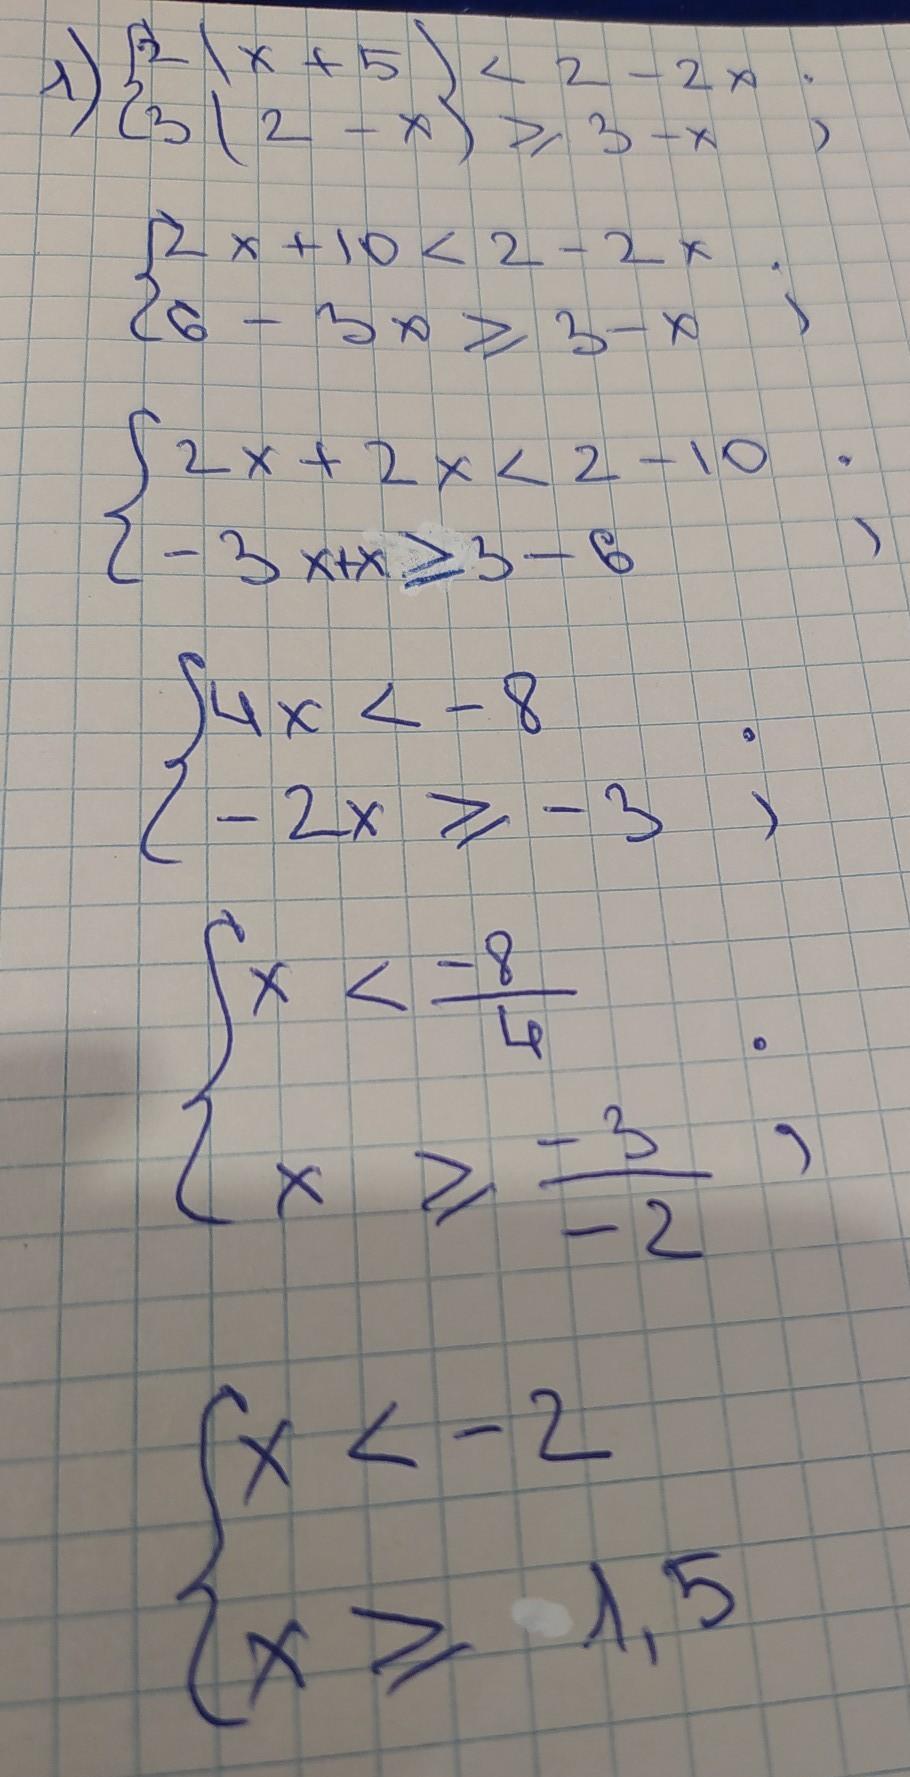 1) { 2(x+5) < 2-2x
{ 3(2-x) ⩾ 3-x ;
{ 2x+10 < 2-2x
{ 6-3x ⩾ 3-x ;
{ 2x+2x < 2-10
{ -3x+x ⩾ 3-6 ;
{ 4x < -8
{ -2x ⩾ -3 ;
{ x < -8/4
{ x ⩾ -3/-2 ;
{ x < -2
{ x ⩾ 1,5